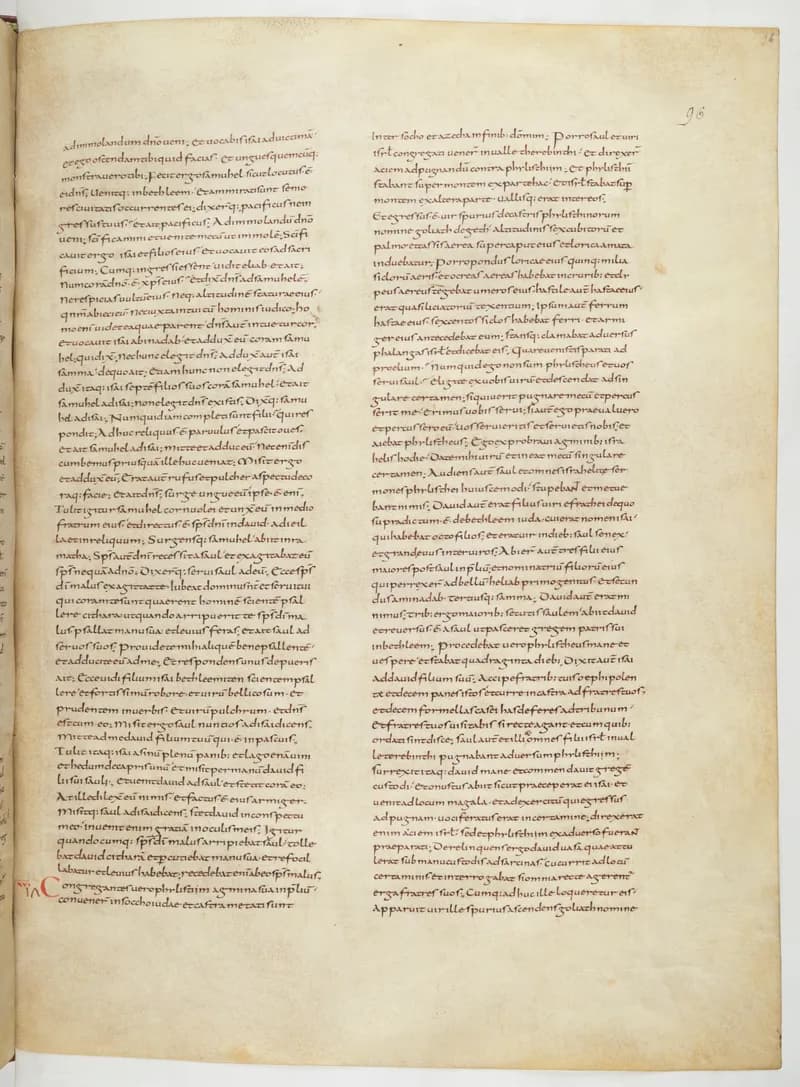 96
ad immolandum dño veni; Et vocabis isai ad victimā
et ego ostendam tibi quid facias. Et ungues quemcūq;
monstravero tibi; Fecit ergo samuhel sicut locutus ē
ei dñs; Venitq; in bethleem. Et ammirati sunt senio
res civitatis occurrentes ei; dixerq; pacificus ne in
gressus tuus? et ait pacificus; Ad immolandū dño
veni; scificamini et venite mecū ut immolē; Scifi
cavit ergo isai et filios eius et vocavit eos ad sacri
ficium; Cumq; ingressi essent vidit eliab et ait;
Num corā dño ē xps eius? et dix dñs ad samuhelē;
Ne respicias vultū eius neq; altitudinē staturae eius
qm̄ abieci eū nec iuxta intuitū hominis iudico; ho
mo enī videt ea quae parent dñs aut intuetur cor;
Et vocavit isai abinadab et adduxit eū coram samu
hel; qui dix; Nec hunc elegit dñs; Adduxit aut isai
samma; de quo ait; Etiam hunc non elegit dñs; Ad
duxit itaq; isai septē filios suos corā samuhel; Et ait
samuhel ad isai; non elegit dñs ex istis; Dixq; samu
hel ad isai; Numquid iam completi sunt filii? qui res
pondit; Adhuc reliquus ē parvulus et pascit oves;
Et ait samuhel ad isai; Mitte et adduc eū; Nec enī dis
cumbemus priusquā ille huc veniat; Misit ergo
et adduxit eū; Erat aut rufus et pulcher aspectu deco
raq; facie; Et ait dñs; surge ungue eū ipse ē enī;
Tulit igitur samuhel cornu olei et unxit eū in medio
fratrum eius et directus ē sps dñi in david a die il
la et in reliquum; Surgensq; samuhel abiit in ra
matha; Sps aut dñi recessit a saul et exagitabat eū
sps nequā a dño; Dixerq; servi saul ad eū; Ecce sps
dī malus exagitat te. Iubeat dominus nt et servi tui
qui coram te sunt quaerent hominē scientē psal
lere cithara ut quando arripuerit te sps dī ma
lus psallat manu sua et levius feras; Et ait saul ad
servos suos; Providete mihi aliquē bene psallentē.
et adducite eū ad me; Et respondens unus de pueris
ait; Ecce vidi filium isai bethleemiten scientē psal
lere et fortissimū robore. et virū bellicosum. et
prudentem in verbis. Et virū pulchrum. et dñs
est cum eo; Misit ergo saul nuntios ad isai dicens;
Mitte ad me david filium tuū qui ē in pascuis;
Tulit itaq; isai asinū plenū panib; et lagoenā vini
et hedum de capris unū et misit per manū david fi
lii sui saul; Et venit david ad saul et stetit corā eo;
At ille dilexit eū nimis. et factus ē eius armiger.
Misitq; saul ad isai dicens; stet david in conspectu
meo invenit enim gratiā in oculis meis; Igitur
quandocumq; sps dī malus arripiebat saul tolle
bat david citharā et percutiebat manu sua et refocil
labatur et levius habebat; recedebat enī ab eo sps malus;
Congregantes vero phylistiim agmina sua in pliū
convener̄ in soccho iudae et castra metati sunt
Inter socho et azecha in finib; dōmim; Porro saul et viri
isrl congregati vener̄ in valle therebinthi. Et direxer̄
aciem ad pugnandū contra phylisthiim; Et phylisthii
stabant super montem ex parte hac. Et isrl stabat sup
montem ex altera parte. vallisq; erat inter eos;
Et egressus ē vir spurius de castris phylisthinorum
nomine goliath de geth. altitudinis sex cubitorū et
palmo et cassis aerea super caput eius et lorica amata
induebatur; Porro pondus loricae eius quinq; milia
siclorū aeris et ocreas aereas habebat in crurib; et cly
peus aereus tegebat umeros eius; hastile aut hastae eius
erat quasi liciatoriū texentium; Ipsum aut ferrum
hastae eius sexcentos siclos habebat ferri. et armi
ger eius antecedebat eum; stansq; clamabat adversus
phalangas isrl et dicebat eis; Quare venistis parati ad
proelium. Numquid ego non sum phylistheus et vos
servi saul. Eligite ex vobis virū et descendat ad sin
gulare certamen; si quiverit pugnare mecū et percus
serit me. Erimus vobis servi; si aut ego praevaluero
et percussero eū. vos servi eritis et servietis nobis; et
aiebat phylistheus; Ego exprobravi agminib; isra
helis hodie. Date mihi virū et ineat mecū singulare
certamen; Audiens aut saul et omnes israhelitae ser
mones phylisthei huiuscemodi. stupebant et metue
bant nimis; David aut erat filius viri efrathei de quo
supra dictum ē de bethleem iuda. cui erat nomen isai
qui habebat octo filios, et erat vir in dieb; saul senex
et grandevus inter viros; Abier̄ aut tres filii eius
maiores post saul in pliū, et nomina triū filiorū eius
qui perrexer̄ ad bellū heliab primogenitus. et secun
dus aminadab. tertiusq; samma; David aut erat mi
nimus; trib; ergo maiorib; secutis saulem. abiit david
et reversus ē a saul ut pasceret gregem patris sui
in bethleem; Procedebat vero phylistheus mane et
vespere et stabat quadraginta dieb; Dixit aut isai
ad david filium suū; Accipe fratrib; tuis oephi polen
tae et decem panes istos et curre in castra ad fratres tuos;
et decem formellas casei has deferes ad tribunum
Et fratres tuos visitabis si recte agant et cum quib;
ordati sint disce; saul aut et illi omnes filii isrl in val
le terebinthi pugnabant adversum phylisthiim;
surrexit itaq; david mane et commendavit gregē
custodi. et onustus abiit sicut praeceperat ei isai. et
venit ad locum magala. et ad exercitū qui egressus
ad pugnam vociferatus erat in certamine; direxerat
enim aciem isrl. sed et phylisthiim ex adverso fuerant
praeparati; Derelinquens ergo david vasa quae attu
lerat sub manu custodis ad sarcinas. cucurrit ad locū
certaminis et interrogabat si omnia recte agerent
erga fratres suos; Cumq; adhuc ille loqueretur eis.
Apparuit vir ille spurius ascendens goliath nomine